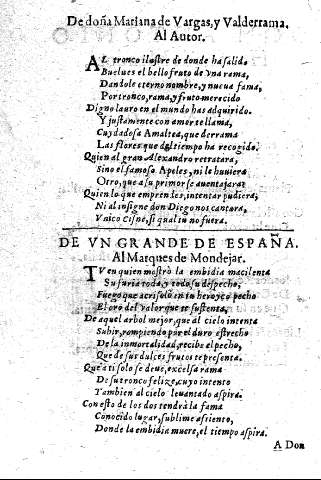 De doña Mariana de Vargas, y Valderrama.
Al Autor.
AL tronco ilustre de donde ha salido
Buelues el bello fruto de vna rama,
Dandole eterno nombre, y nueua fama,
Por tronco, rama, y fruto merecido
Digno lauro en el mundo has adquirido.
Y justamente con amor te llama,
Cuydadosa Amaltea, que derrama
Las flores que del tiempo ha recogido.
Quien al gran Alexandro retratara,
Sino el famoso Apeles, ni le huuiera
Otro, que a su primor se auentajara:
Quien lo que emprendes, intentar pudiera,
Ni al insigne don Diego nos cantara,
Vnico Cisne, si qual tu no fuera.
DE VN GRANDE DE ESPAÑA.
Al Marques de Mondejar.
TV en quien mostrò la embidia macilenta
Su furia toda, y todo su despecho,
Fuego que acrisolò en tu heroyco pecho
El oro del valor que te sustenta,
De aquel arbol mejor, que al cielo intenta
Subir, rompiendo por el duro estrecho
De la inmortalidad, recibe el pecho,
Que de sus dulces frutos te presenta.
Que a ti solo se deue, excelsa rama
De su tronco felize, cuyo intento
Tambien al cielo leuantado aspira.
Con esto de los dos tendrà la fama
Conocido lugar, sublime assiento,
Donde la embidia muere, el tiempo aspira.
A Don